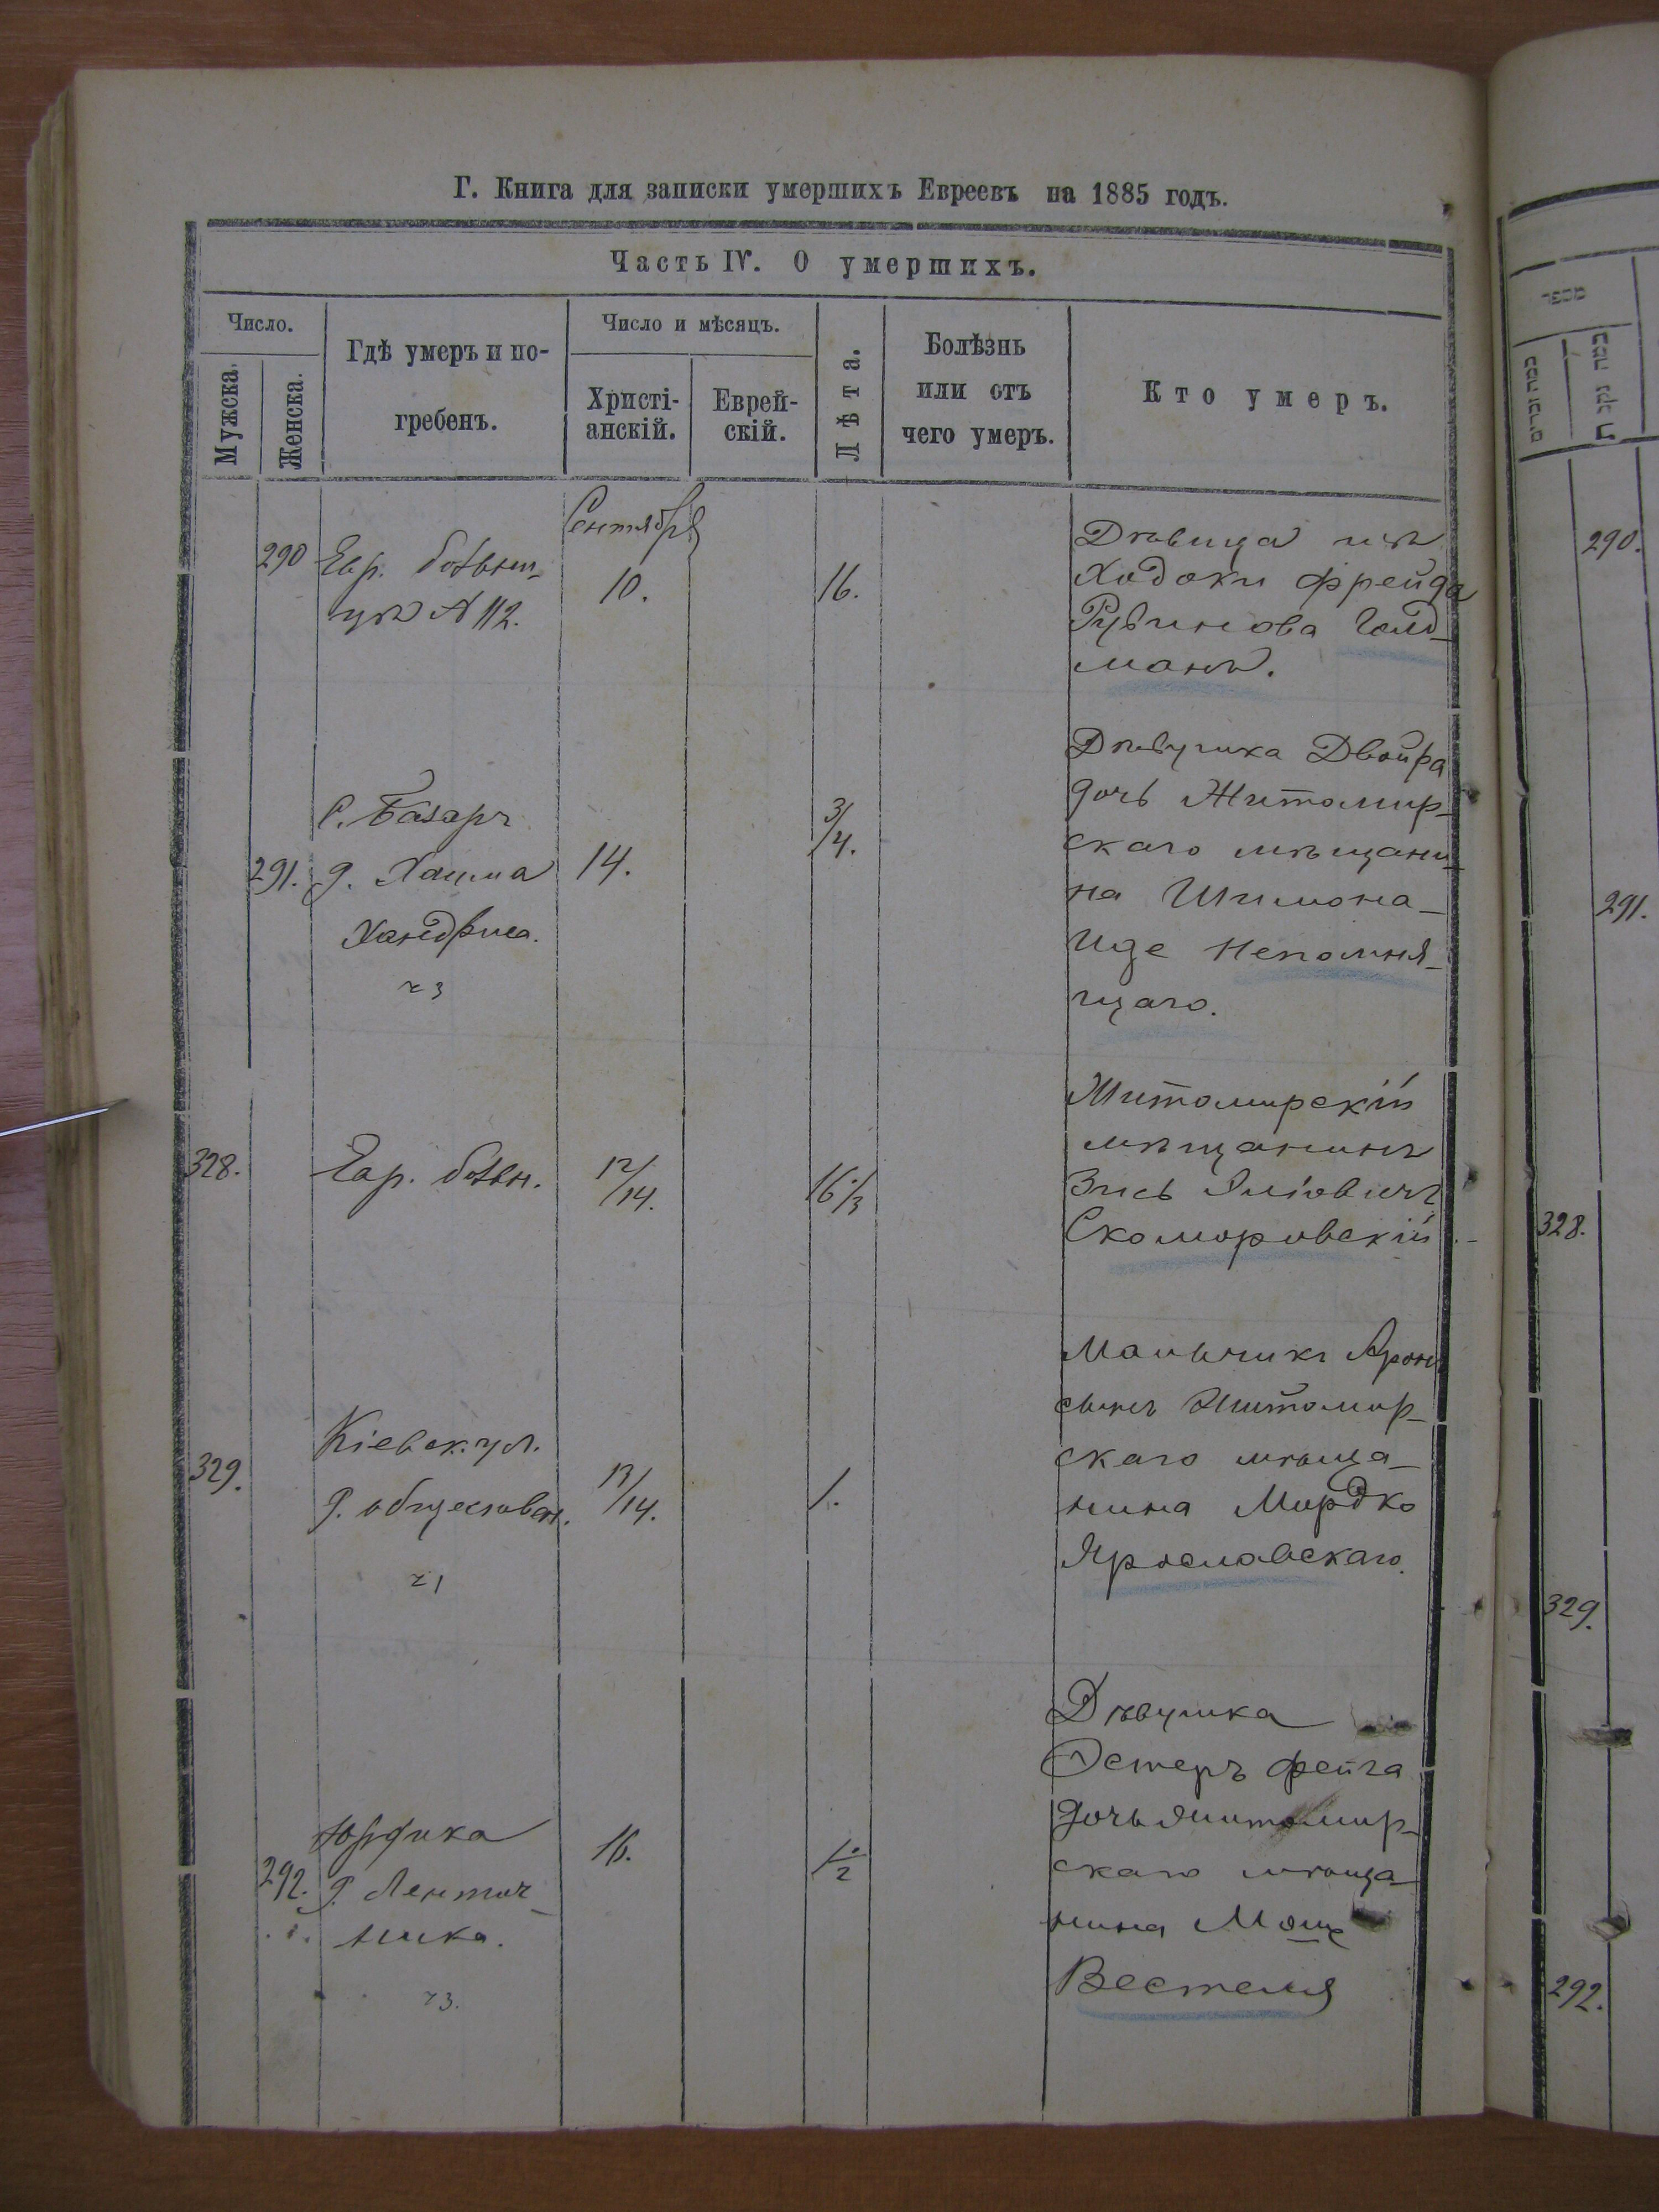 Г. Книга для записки умершихъ Евреевъ на 1885 годъ.
Часть IV. О умершихъ.
Число.
Мужска.
Женска.
Гдѣ умеръ и по-
гребенъ.
Число и мѣсяцъ.
Христі-
анскій.
Еврей-
скій.
Лѣта.
Болѣзнь
или отъ
чего умеръ.
Кто умеръ.
Сентября
290 Евр. больни-
цѣ № 112.
10.
16.
Дѣвица изъ
Ходоки Фрейда
Рувинова Голд-
манъ.
291.
С. Базаръ
д. Хаима
ч 3
14.
3/4.
Дѣвушка Двойра
дочь Житомир-
скаго мѣщани-
на Шимона-
Иде Непомня-
щаго.
328.
Евр. больн.
12/14.
16 1/3
Житомирскій
мѣщанинъ
Зись
Скоморовскій.
329.
Кіевск. ул.
д. обществен.
ч 1
13/14.
1.
Мальчикъ Аронъ
сынъ Житомир-
скаго мѣща-
нина Мордко
Ярославскаго.
292.
д. Ленточ-
ника.
ч 3.
16.
1/2
Дѣвушка
Эстеръ Фейга
дочь Житомир-
скаго мѣща-
нина
Вестеля
290.
291.
328.
329.
292.